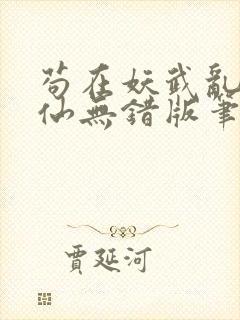 苟在妖武亂
仙無錯版筆
賈延河